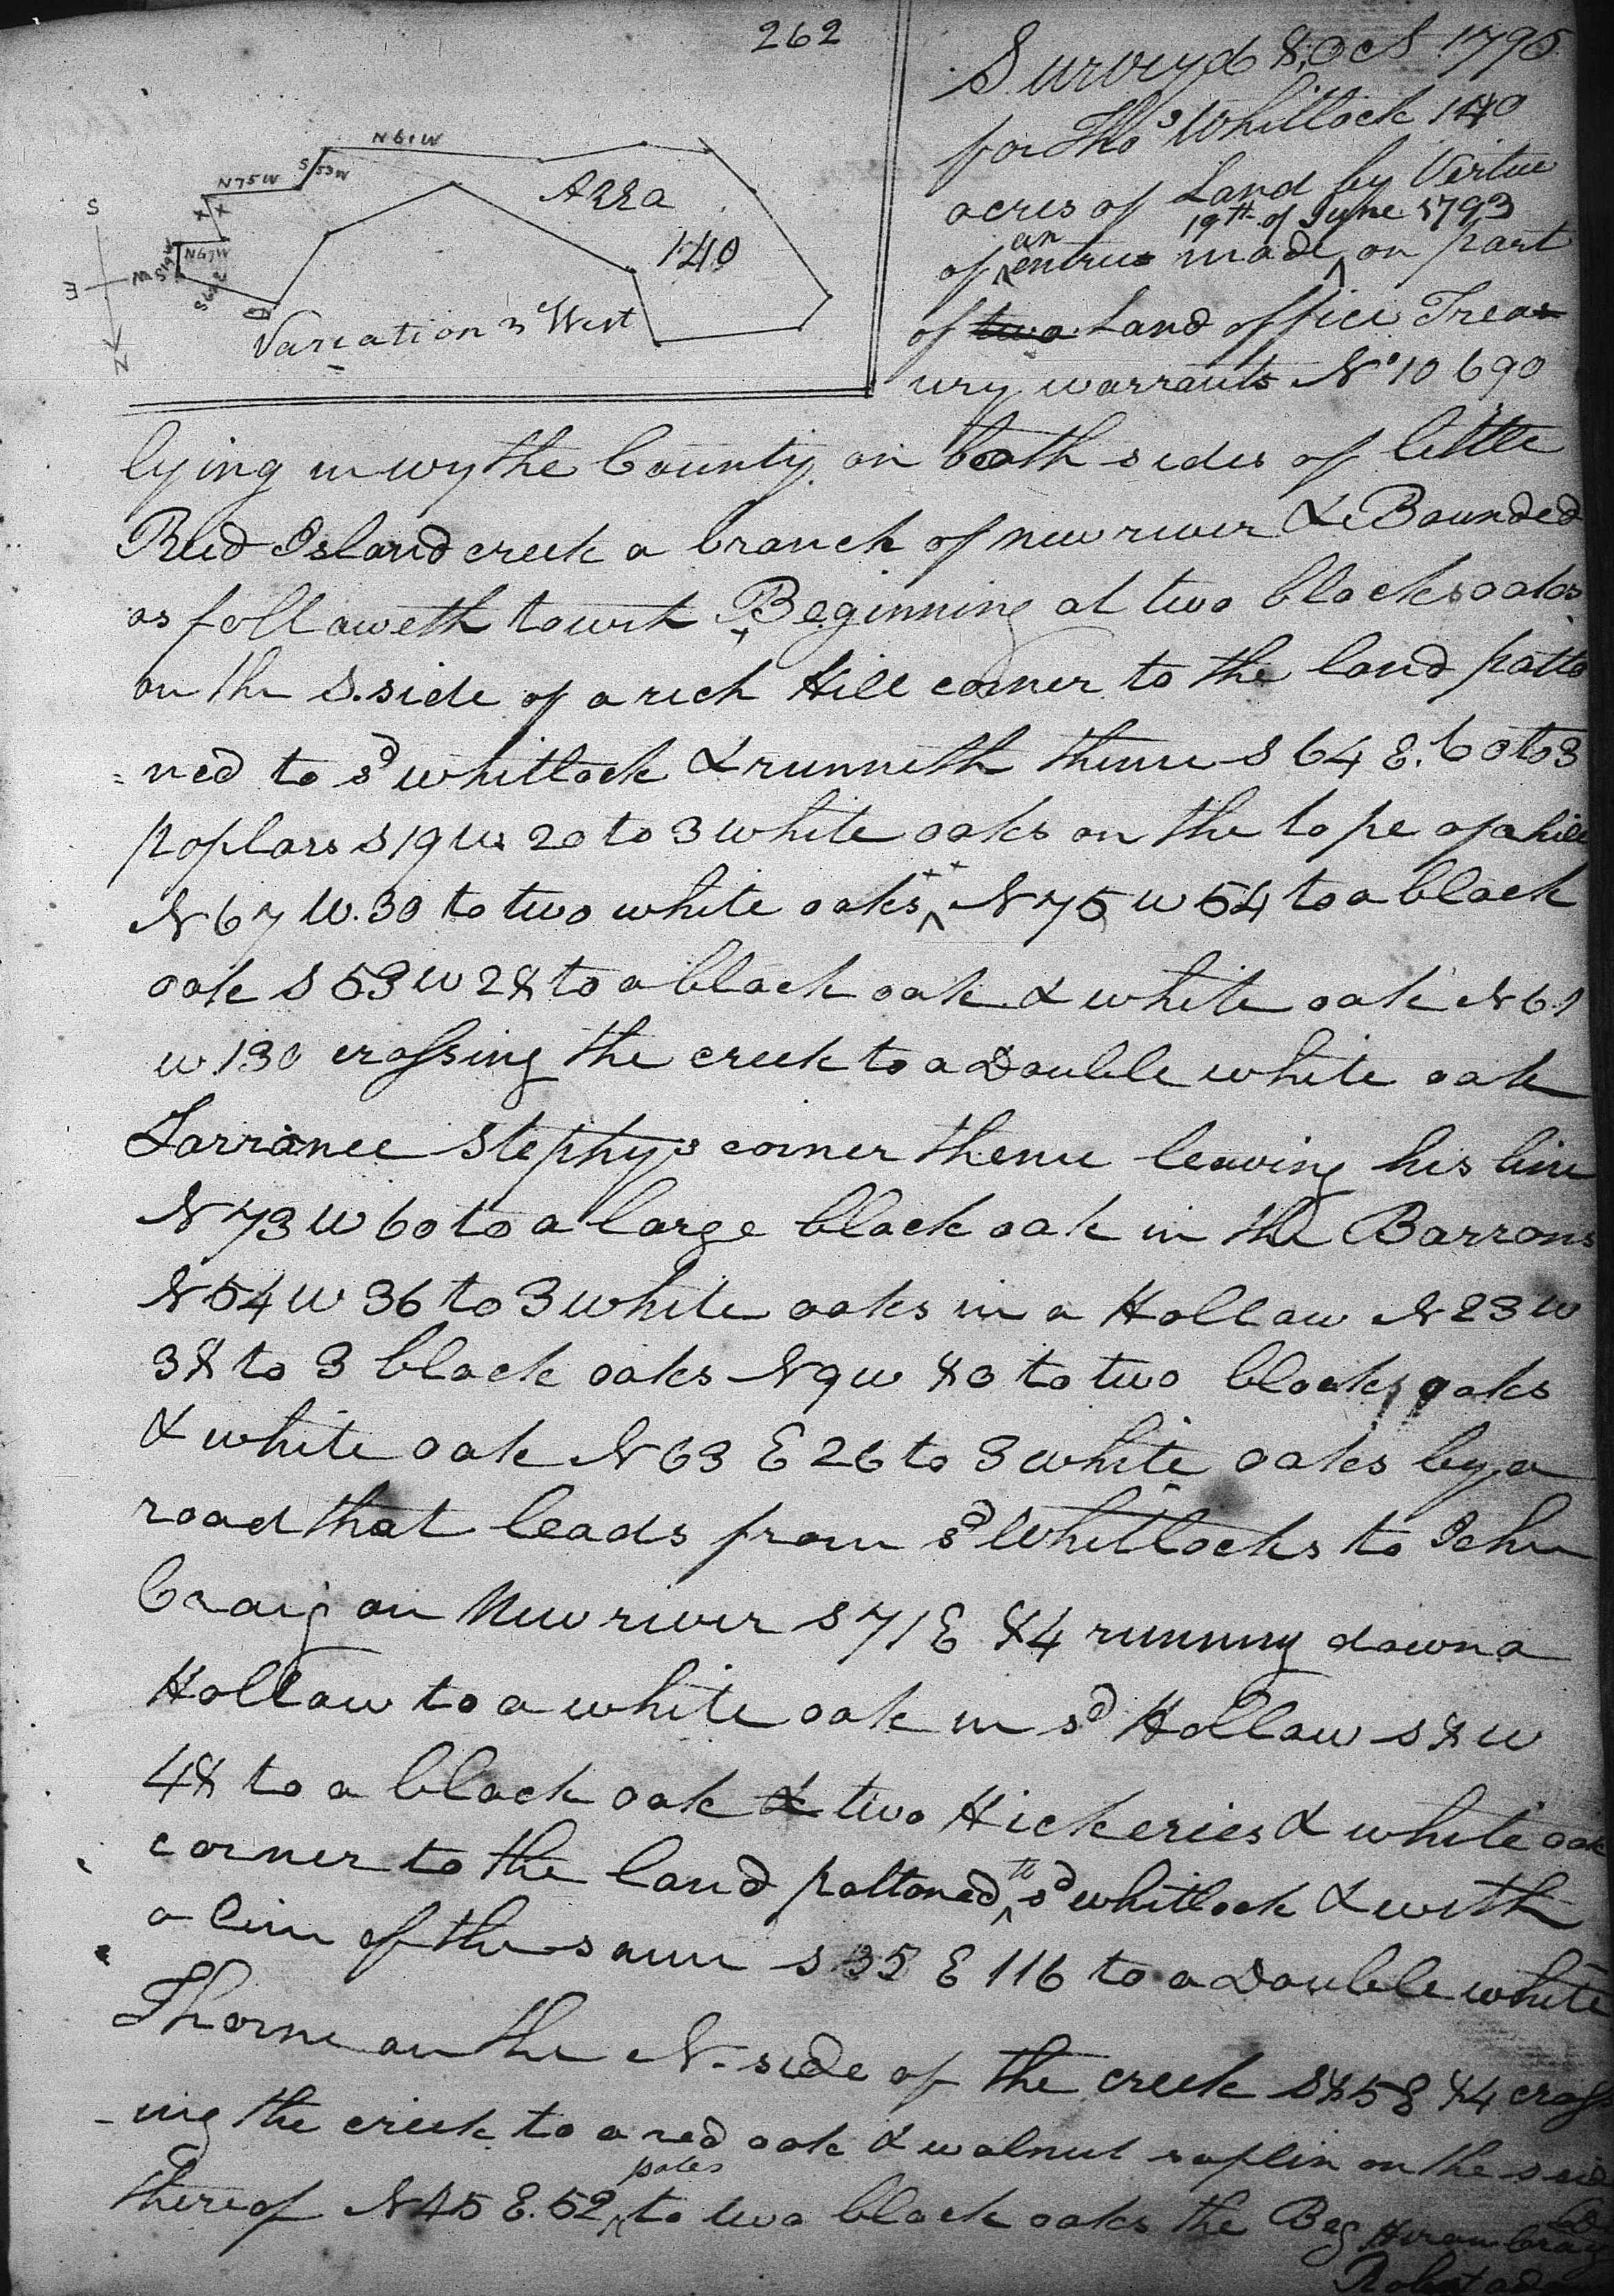 262
Surveyd 8. Oct 1795
for Thos Whitlock 140
acres of Land by Virtue
19th of June 1793
of an entrie made on part
of two Land office Treas
ury warrants No 10 690
N61W
S53W
N75W
++
N67W
S19W
S64E
Area
140
Variation 3° West
S
E
W
N
B
lying in wythe County on both sides of little
Reed Island creek a branch of new river & Bounded
as followeth towit Beginning at two blacks oaks
on the S. side of a rich Hill corner to the land patto
=ned to sd whitlock & runneth thence S 64 E. 60 to 3
poplars S 19 W 20 to 3 white oaks on the tope of a hill
N 67 W. 30 to two white oaks ++ N 75 W 54 to a black
oak S 53 W 28 to a black oak & white oak N 61
W 130 crossing the creek to a Double white oak
Larrance Stephys corner thence leaving his line
N 73 W 60 to a large black oak in the Barrons
N 54 W 36 to 3 white oaks in a Hollow N 23 W
38 to 3 black oaks N 9 W 80 to two blacks oaks
& white oak N 63 E 26 to 3 white oaks by a
road that leads from sd Whitlocks to John
Craig on New river S 71 E 84 running down a
Hollow to a white oak in sd Hollow S 8 W
48 to a black oak & two Hickeries & white oak
corner to the land pattoned to sd whitlock & with
a line of the same S 35 E 116 to a Double white
Thorne on the N. side of the creek S 85 E 84 cross
-ing the creek to a red oak & walnut saplin on the side
thereof N 45 E. 52 poles to two black oaks the Beg